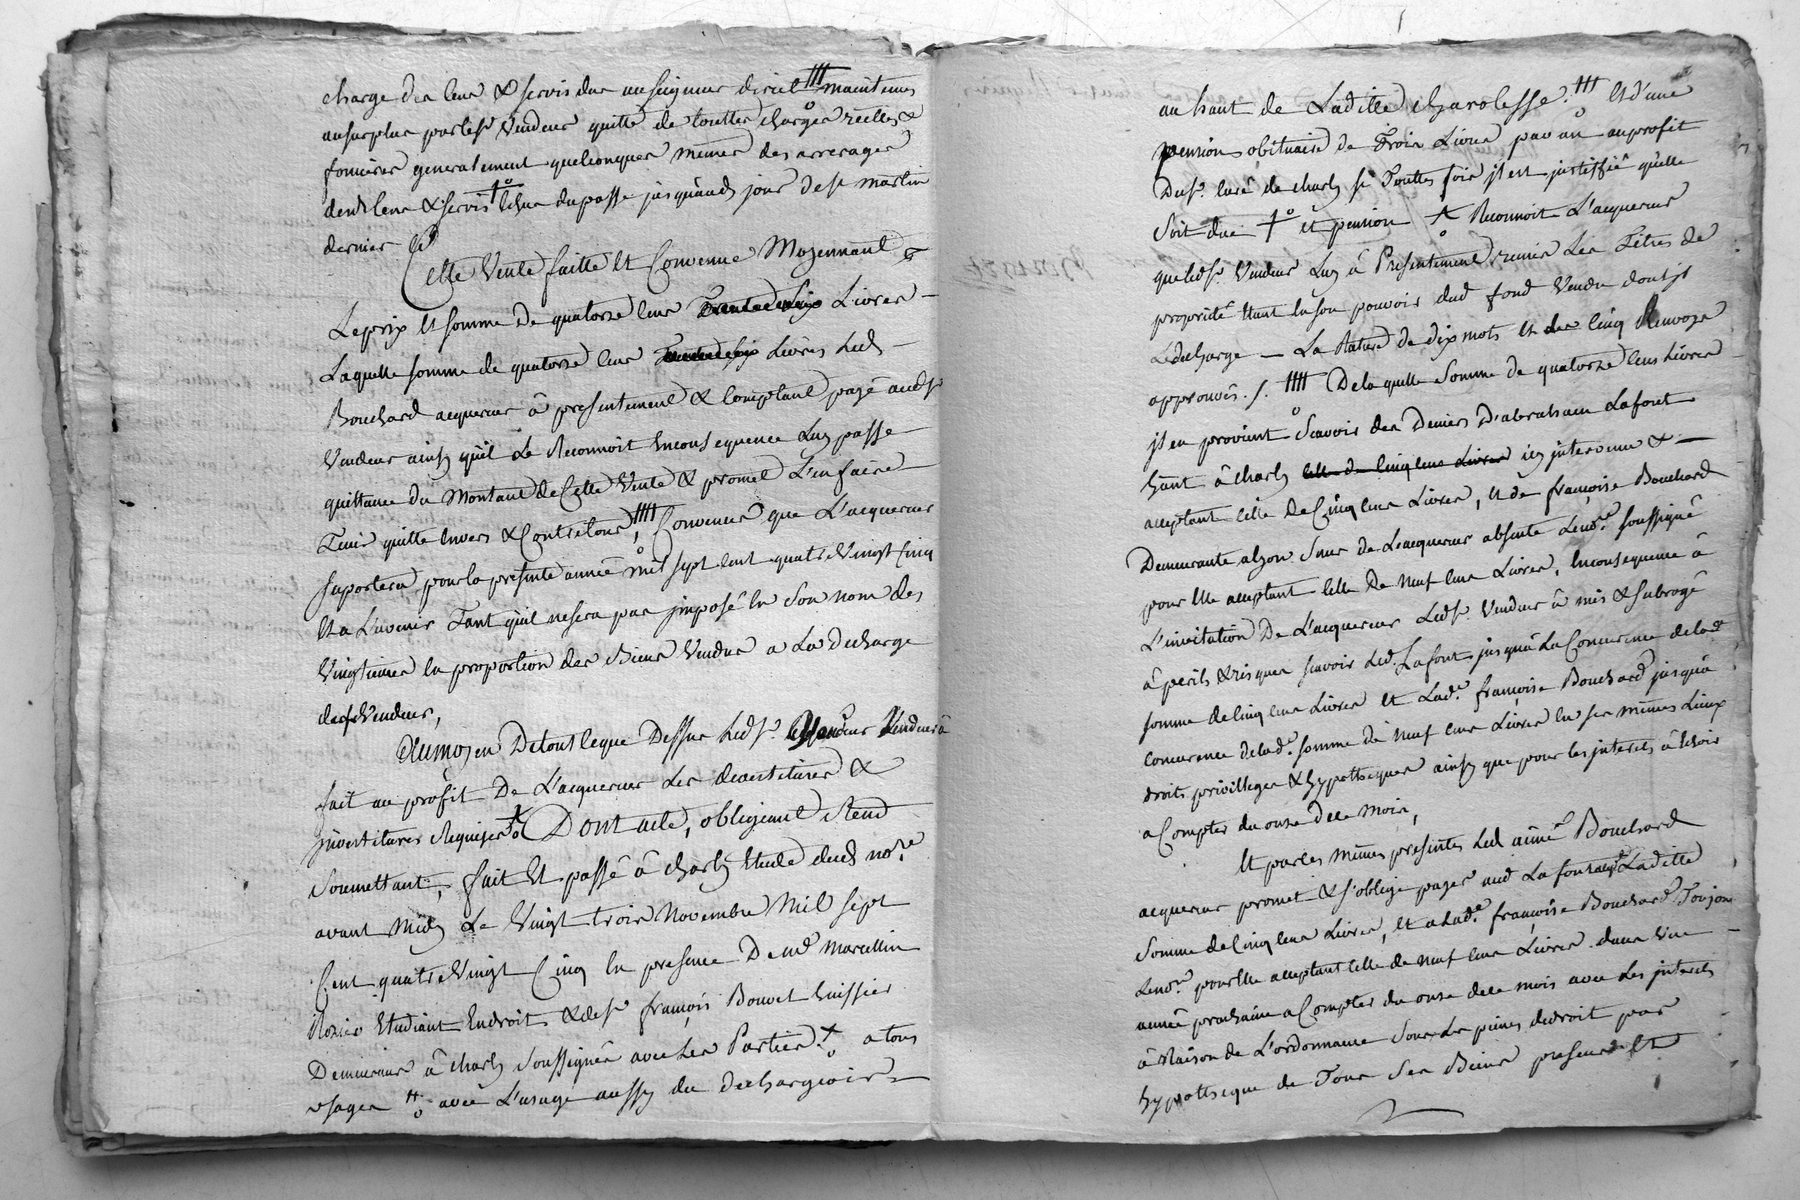 charge des cens & servis dus au seigneur direct //// maintenus
ausurplus par led sr. Vendeur quitte de touttes charges réelles &
foncieres generalement quelconques mêmes des arrerages
desd. Cens & servis echus du passé jusqu'aud. jour de st. martin
dernier
Cette Vente faitte Et Convenue Moyennant
Le prix Et somme de quatorze cens Livres
Laquelle somme de quatorze cens Livres Led.
Bouchard acquereur à présentement & Comptant payé aud sr.
Vendeur ainsy qu'il Le Reconnoit Enconsequence Luy passe
quittance du Montant de Cette Vente & promet L'en faire
Tenir quitte Envers & Contre tous, //// Convenus que L'acquereur
suportera pour la presente année mil sept cent quatre Vingt Cinq
Et a L'avenir Tant qu'il ne sera pas jmposé En son nom des
Vingtiemes En proportion des Biens Vendus a La décharge
dud sr Vendeur,
Au moyen De tout ce que Dessus Led sr. Vendeur à
fait au profit De L'acquereur Les devestitures &
jnvestitures Requises Dont acte, obligeant Rend
Soumettant, fait Et passé à Charly Etude dud. nore.
avant Midy Le Vingt trois Novembre Mil sept
Cent quatre Vingt Cinq En presence De me. Marcellin
Rozier Etudiant Endroit & de sr françois Bouvet huissier
Demeurant à Charly soussignés avec Les Parties. a tous
usages avec L'usage aussy du dechargeoir
au haut de Laditte charolesse. //// Et d'une
pension obituaire de Trois Livres par an au profit
Du sr. Curé de Charly si Touttes fois jl est justiffié qu'elle
Soit due et pension Reconnoit L'acquereur
que led sr. Vendeur Luy à Présentement remis Les Titres de
proprieté Etant En son pouvoir dud. fond Vendu dont jl
Le decharge — La Rature de dix mots Et des Cinq Renvoys
approuvés. /. //// De laquelle Somme de quatorze Cens Livres
jl en provient Scavoir des Deniers D'abraham Lafont
hant à Charly celle de Cinq Cens Livres icy jntervenu &
acceptant celle De Cinq Cens Livres, Et de françoise Bouchard
Demeurante alyon Sœur de L'acquereur absente Le nore. soussigné
pour Elle acceptant Celle De Neuf Cens Livres, Enconsequence à
L'invitation De L'acquereur Led sr. Vendeur à mis & subrogé
à perils & risques scavoir Led. Lafont jusqu'à La Concurence de lad.
somme de Cinq Cens Livres et Lade. françoise Bouchard jusqu'à
concurence de lade. somme de Neuf Cens Livres En ses mêmes Lieux
droits privilleges & hypotheques ainsy que pour les jnterets à Echoir
a Compter du onze de ce mois,
Et par les mêmes presentes Led. aimé Bouchard
acquereur promet & s'oblige payer aud. Lafont Laditte
Somme de Cinq Cens Livres, Et a Lade. françoise Bouchard Toujours
Le nore. pour Elle acceptant Celle de Neuf Cens Livres dans Une
année prochaine a Compter du onze de ce mois avec Les jnterets
à Raison de L'ordonnance Sous Les peines de droit par
hypotheque de Tous Ses Biens presens Et